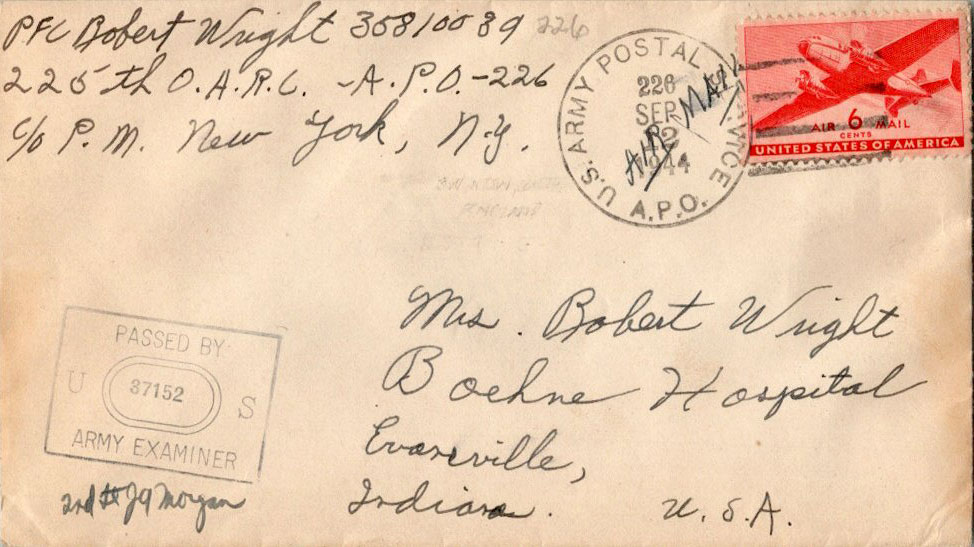 PFC Robert Wright 35810039 226
225th O.A.R.C. -A.P.O.-226
c/o P.M. New York, N.Y.
U.S. ARMY POSTAL SERVICE
226
SEP
2
1944
A.P.O.
AIR MAIL
AIR 6 MAIL
CENTS
UNITED STATES OF AMERICA
ENGLAND
Mrs. Robert Wright
Boehne Hospital
Evansville,
Indiana. U.S.A.
PASSED BY
U 37152 S
ARMY EXAMINER
2nd Lt J A Morgan